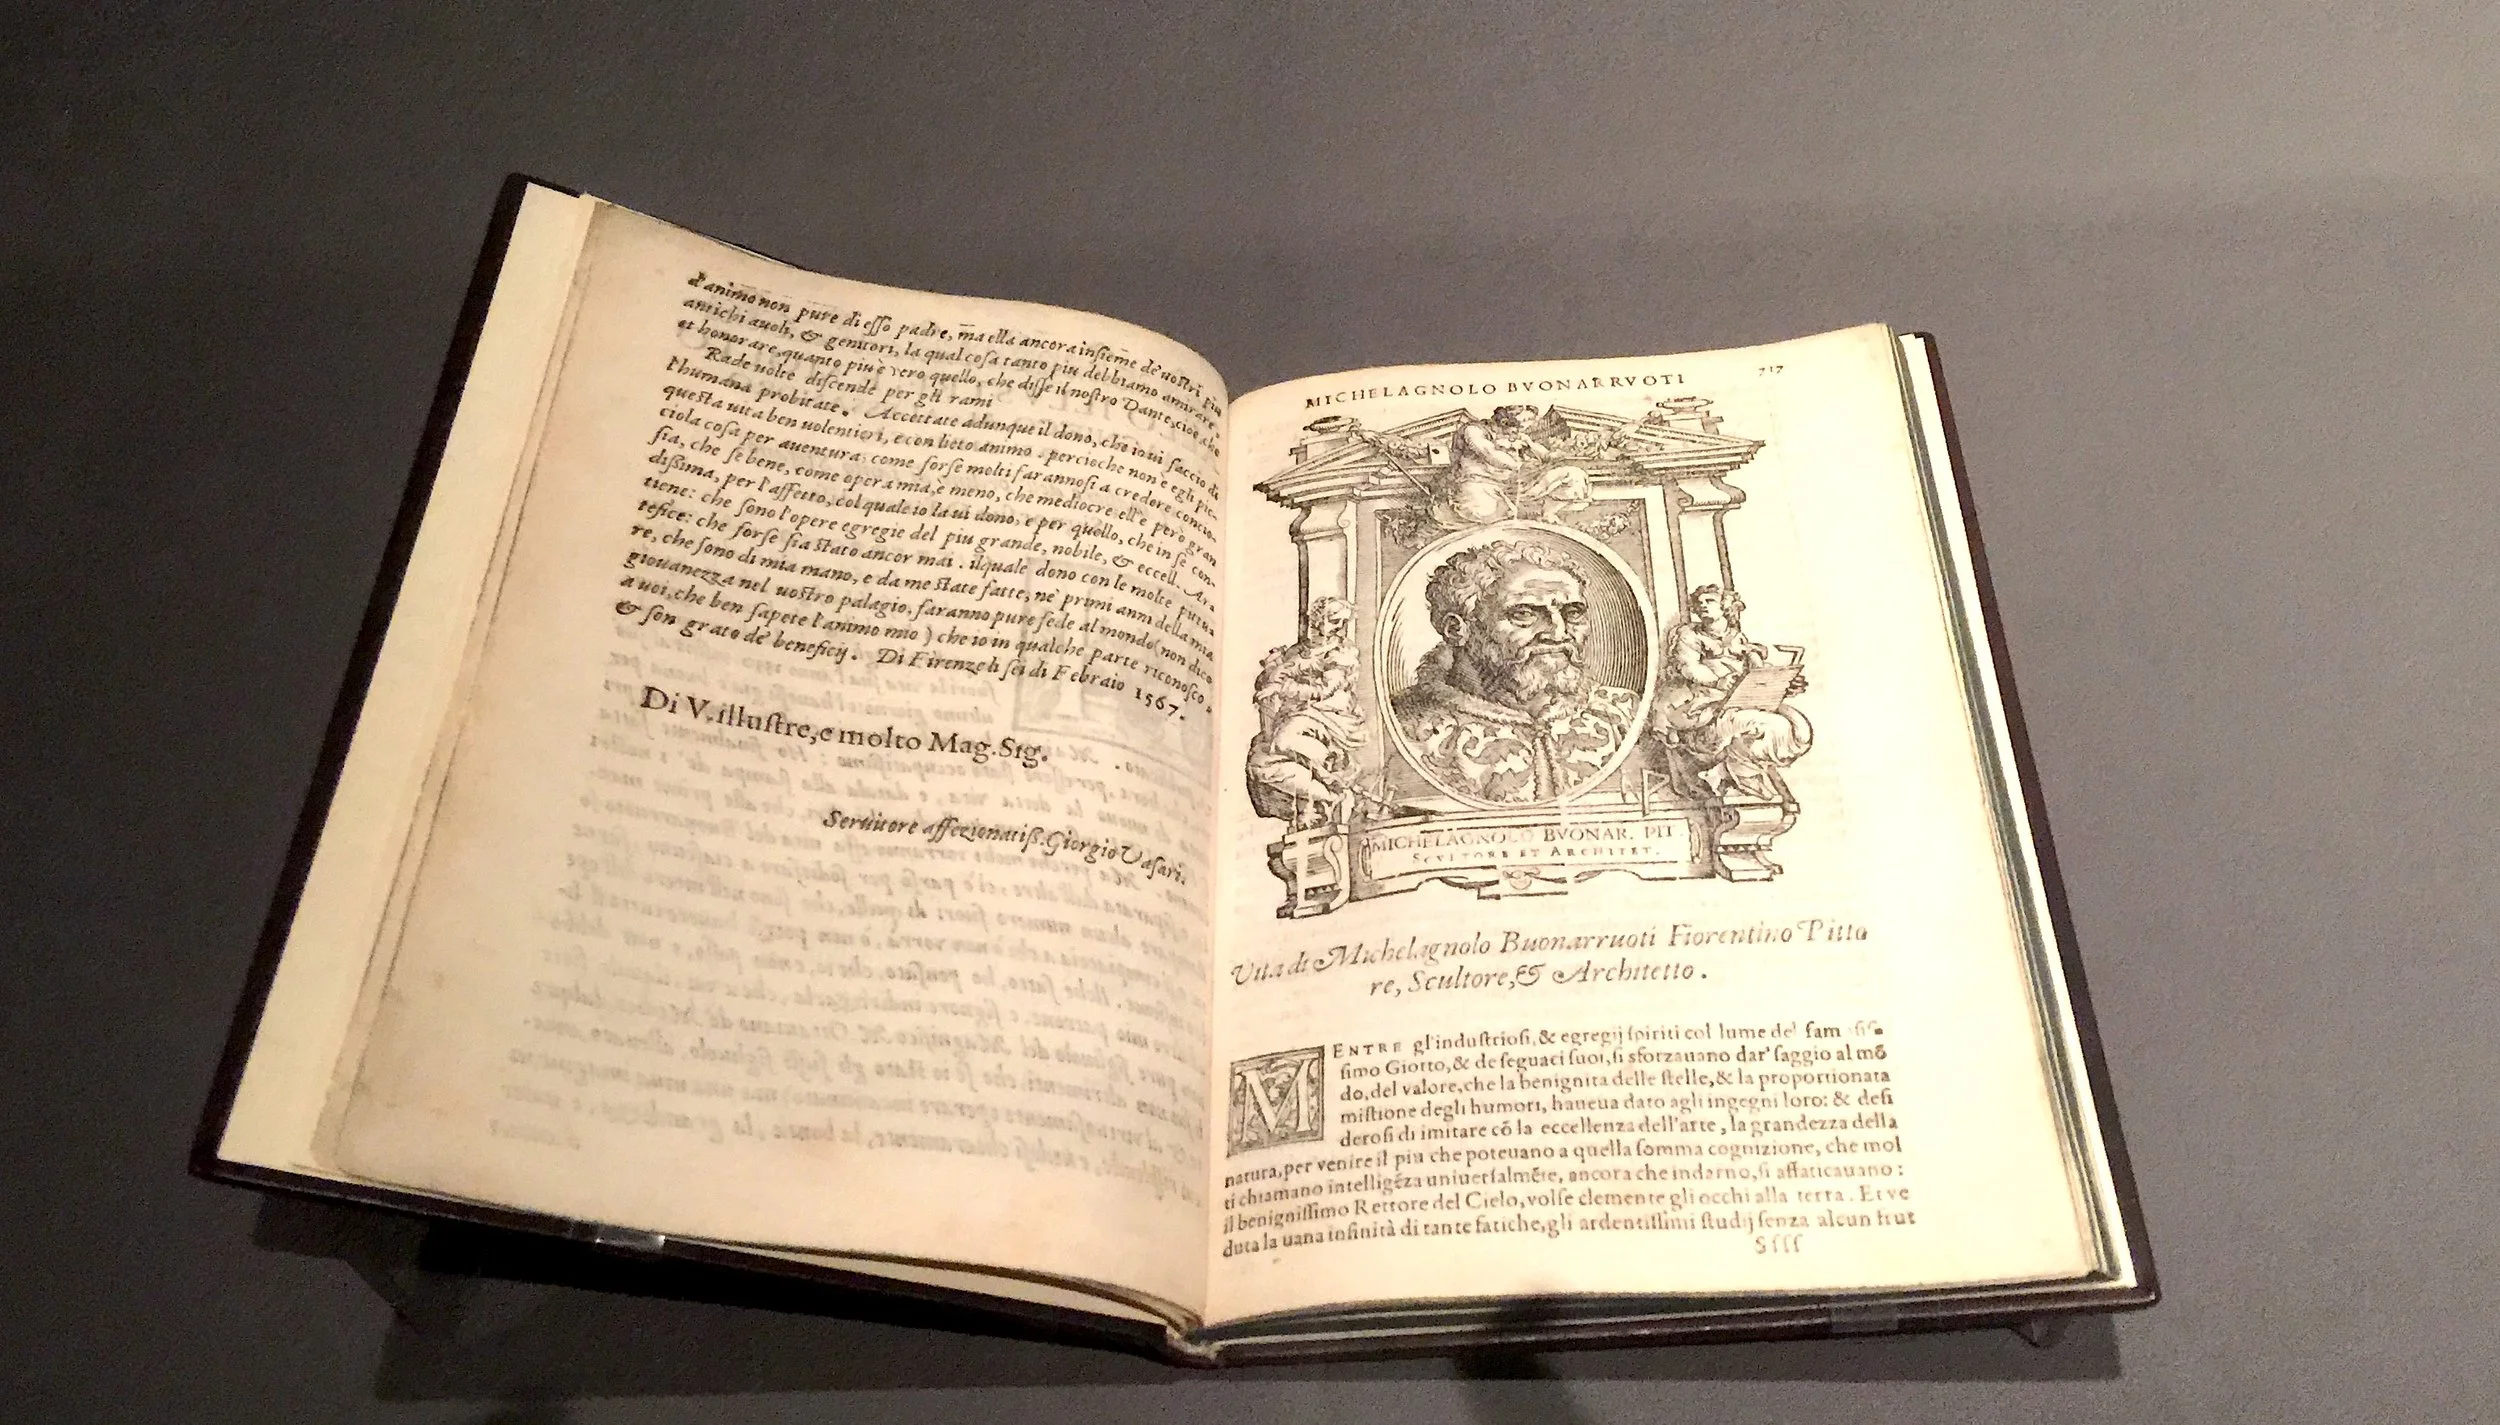 d'animo non pure di esso padre, m̄a ella ancora insiem̄e de' uostri piu
antichi auoli, & genitori, la qual cosa tanto piu debbiamo amirare,
et honorare, quanto piu è vero quello, che disse il nostro Dante, cioè che
Rade uolte discende per gli rami
l'humana probitate. Accettate adunque il dono, che io ui faccio di
questa uita ben uolentieri, e con lieto animo. percioche non è egli pic-
ciola cosa per auentura, come forse molti farannosi a credere concio-
sia, che se bene, come opera mia, è meno, che mediocre ell'è però gran
dißima, per l'affetto, col quale io la ui dono, e per quello, che in se con-
tiene: che sono l'opere egregie del piu grande, nobile, & eccell. Ar-
tefice: che forse sia stato ancor mai. il quale dono con le molte pittu-
re, che sono di mia mano, e da me state fatte, ne' primi anni della mia
giouanezza nel uostro palagio, faranno pure fede al mondo (non dico
a uoi, che ben sapete l'animo mio) che io in qualche parte riconosco,
& son grato de' beneficij. Di Firenze li sei di Febraio 1567.
Di V. illustre, e molto Mag. Sig.
Seruitore affezionatiß. Giorgio Vasari.
MICHELAGNOLO BVONARRVOTI 717
MICHELAGNOLO BVONAR. PIT.
SCVLTORE ET ARCHITET.
Vita di Michelagnolo Buonarruoti Fiorentino Pitto
re, Scultore, & Architetto.
MENTRE gl'industriosi, & egregij spiriti col lume de'
simo Giotto, & de seguaci suoi, si sforzauano dar' saggio al mō
do, del valore, che la benignita delle stelle, & la proportionata
mistione degli humori, haueua dato agli ingegni loro: & desi
derosi di imitare cō la eccellenza dell'arte, la grandezza della
natura, per venire il piu che poteuano a quella somma cognizione, che mol
ti chiamano intelligēza uniuersalmēte, ancora che indarno, si affaticauano:
il benignissimo Rettore del Cielo, volse clemente gli occhi alla terra. Et ve
duta la uana infinità di tante fatiche, gli ardentissimi studij senza alcun frut
Sfff